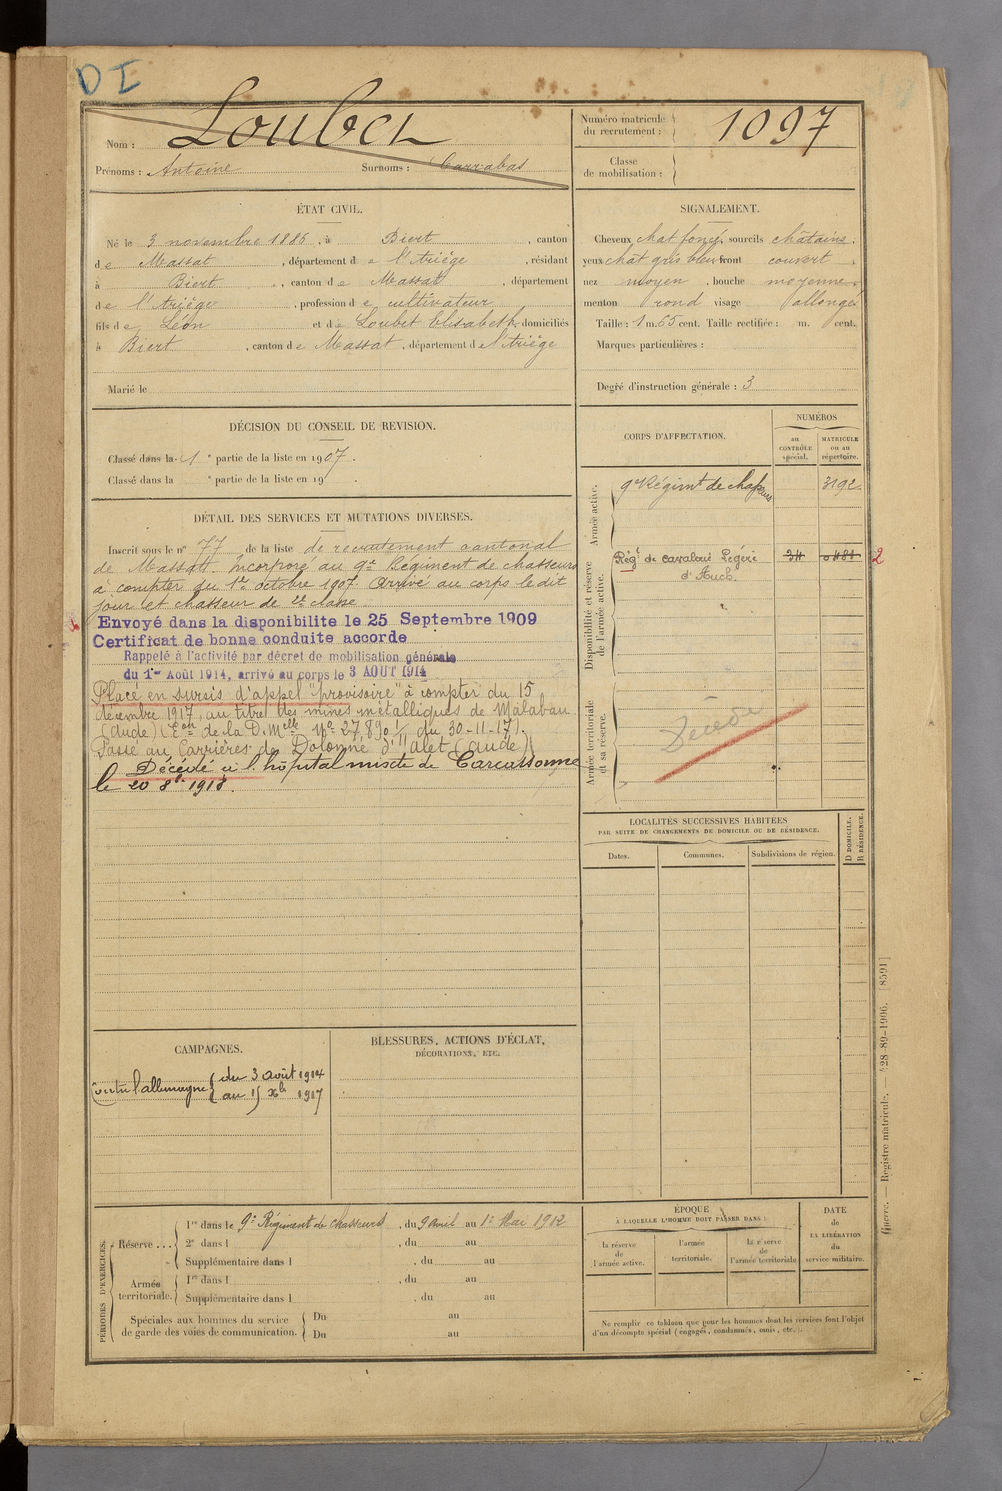 DI
Nom : Loubet
Numéro matricule du recrutement : 1097
Prénoms : Antoine Surnoms : Carrabas
Classe de mobilisation :
ÉTAT CIVIL.
Né le 3 novembre 1886, à Biert, canton
de Massat, département de l'Ariège, résidant
à Biert, canton de Massat, département
de l'Ariège, profession de cultivateur
fils de Léon et de Loubet Elisabeth domiciliés
à Biert, canton de Massat, département de l'Ariège
Marié le
SIGNALEMENT.
Cheveux chat foncé sourcils châtains.
yeux chat gris bleu front couvert
nez moyen, bouche moyenne
menton rond visage allongé
Taille : 1 m. 65 cent. Taille rectifiée : m. cent.
Marques particulières :
Degré d'instruction générale : 3
DÉCISION DU CONSEIL DE REVISION.
Classé dans la 1e partie de la liste en 1907.
Classé dans la e partie de la liste en 19 .
DÉTAIL DES SERVICES ET MUTATIONS DIVERSES.
Inscrit sous le n° 77 de la liste de recrutement cantonal
de Massat. Incorporé au 9e Régiment de chasseurs
à compter du 1er octobre 1907. Arrivé au corps le dit
jour et chasseur de 2e classe.
Envoyé dans la disponibilite le 25 Septembre 1909
Certificat de bonne conduite accorde
Rappelé à l'activité par décret de mobilisation générale
du 1er Août 1914, arrivé au corps le 3 AOUT 1914
Placé en sursis d'appel "provisoire" à compter du 15
décembre 1917, au titre des mines métalliques de Malabau
(Aude) (Eon de la D. Melle No 27,890 1/11 du 30-11-17).
Passé au Carrières de Dolomie d'Alet (Aude)
Décédé à l'hôpital mixte de Carcassonne
le 20 8bre 1918.
CORPS D'AFFECTATION.
NUMÉROS
au CONTRÔLE spécial.
MATRICULE ou au répertoire.
Armée active.
9e Régimt de chasseurs 3192
Disponibilité et réserve de l'armée active.
Régt de cavalerie légère 34 0481 2
d'Auch.
Armée territoriale et sa réserve.
Décédé
LOCALITÉS SUCCESSIVES HABITÉES
PAR SUITE DE CHANGEMENTS DE DOMICILE OU DE RÉSIDENCE.
Dates. Communes. Subdivisions de région.
D DOMICILE.
R RÉSIDENCE.
CAMPAGNES.
Contre l'allemagne { du 3 août 1914
au 15 Xbre 1917
BLESSURES, ACTIONS D'ÉCLAT,
DÉCORATIONS, ETC.
PÉRIODES D'EXERCICES.
Réserve ...
1re dans le 9e Régiment de chasseurs, du 9 avril au 1er Mai 1912
2e dans l , du au
Supplémentaire dans l , du au
Armée territoriale.
1re dans l , du au
Supplémentaire dans l , du au
Spéciales aux hommes du service
de garde des voies de communication.
Du au
Du au
ÉPOQUE
À LAQUELLE L'HOMME DOIT PASSER DANS :
la réserve de l'armée active.
l'armée territoriale.
la réserve de l'armée territoriale
DATE
de
LA LIBÉRATION
du
service militaire.
Ne remplir ce tableau que pour les hommes dont les services font l'objet
d'un décompte spécial (engagés, condamnés, omis, etc.).
Guerre. — Registre matricule. — 428-89-1906. [8591]